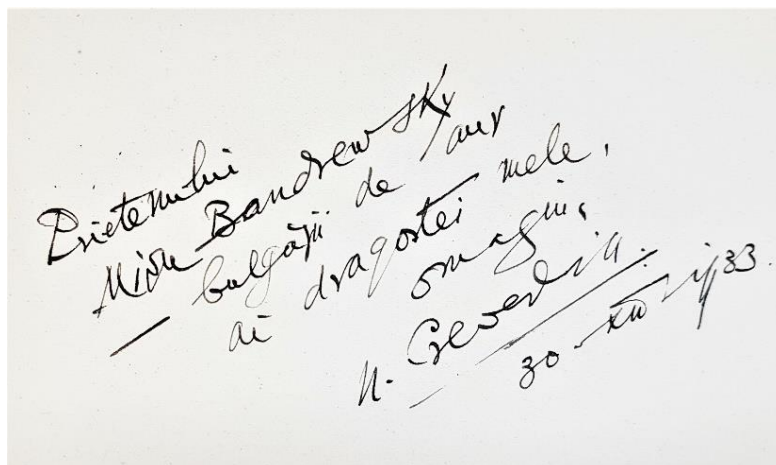 Prietenului
Mișu Bandrewsky
— bulgării de aur
ai dragostei mele,
omagiu,
N. Crevedia.
30.XII.1933.